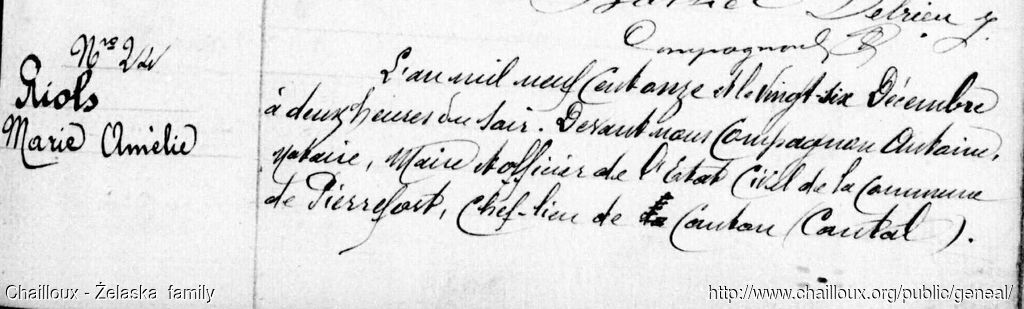 Delrieu J.
Compagnon A
Nro 24
Riols
Marie Amélie
L'an mil neuf cent onze et le vingt-six Décembre
à deux heures du soir. Devant nous Compagnon Antoine,
Notaire, Maire et officier de l'Etat Civil de la Commune
de Pierrefort, Chef-lieu de Canton (Cantal).
Chailloux - Żelaska family
http://www.chailloux.org/public/geneal/